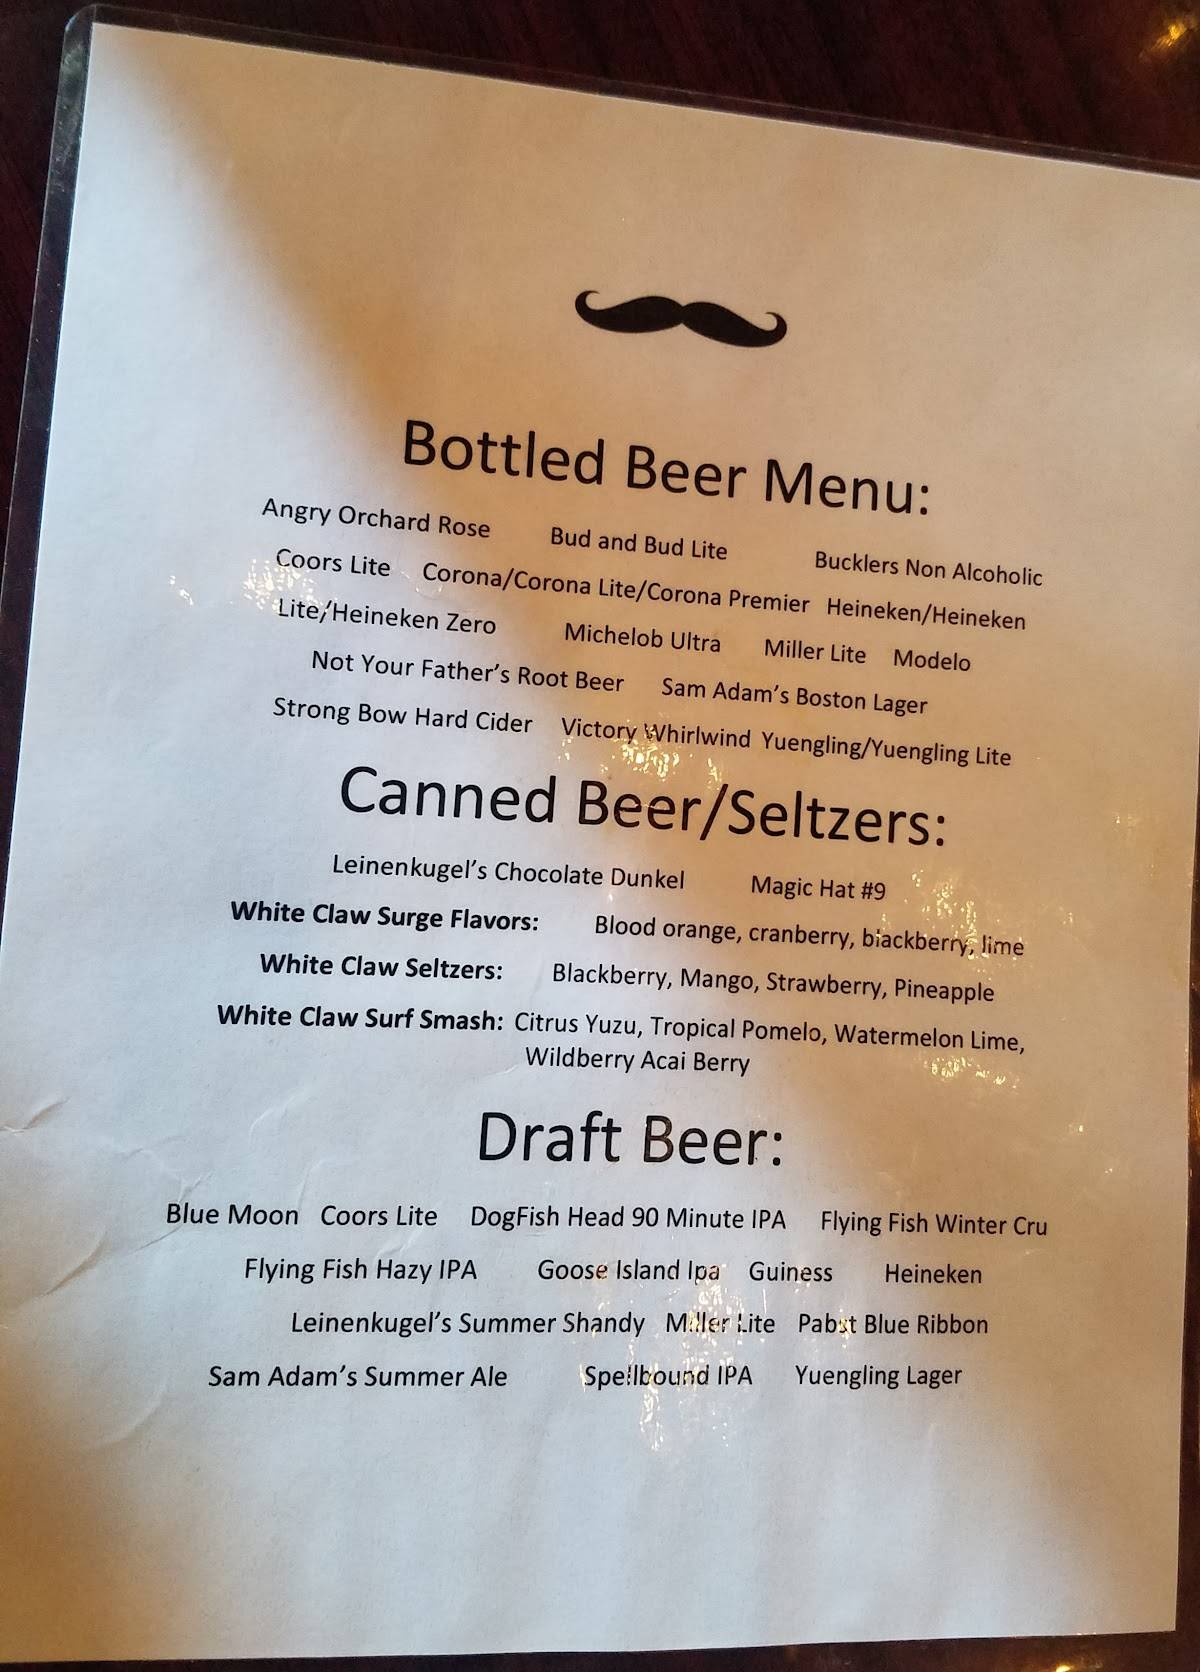 Bottled Beer Menu:
Angry Orchard Rose Bud and Bud Lite Bucklers Non Alcoholic
Coors Lite Corona/Corona Lite/Corona Premier Heineken/Heineken
Lite/Heineken Zero Michelob Ultra Miller Lite Modelo
Not Your Father's Root Beer Sam Adam's Boston Lager
Strong Bow Hard Cider Victory Whirlwind Yuengling/Yuengling Lite
Canned Beer/Seltzers:
Leinenkugel's Chocolate Dunkel Magic Hat #9
White Claw Surge Flavors: Blood orange, cranberry, blackberry, lime
White Claw Seltzers: Blackberry, Mango, Strawberry, Pineapple
White Claw Surf Smash: Citrus Yuzu, Tropical Pomelo, Watermelon Lime,
Wildberry Acai Berry
Draft Beer:
Blue Moon Coors Lite DogFish Head 90 Minute IPA Flying Fish Winter Cru
Flying Fish Hazy IPA Goose Island Ipa Guiness Heineken
Leinenkugel's Summer Shandy Miller Lite Pabst Blue Ribbon
Sam Adam's Summer Ale Spellbound IPA Yuengling Lager